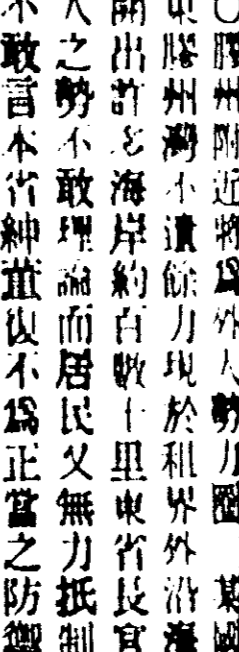 〇膠州附近將爲外人勢力圈 某國
東膠州灣不遺餘力現於租界外沿海
開出許多海岸約百數十里東省長官
人之勢不敢理論而居民又無力抵制
不敢言本省紳董復不爲正當之防禦